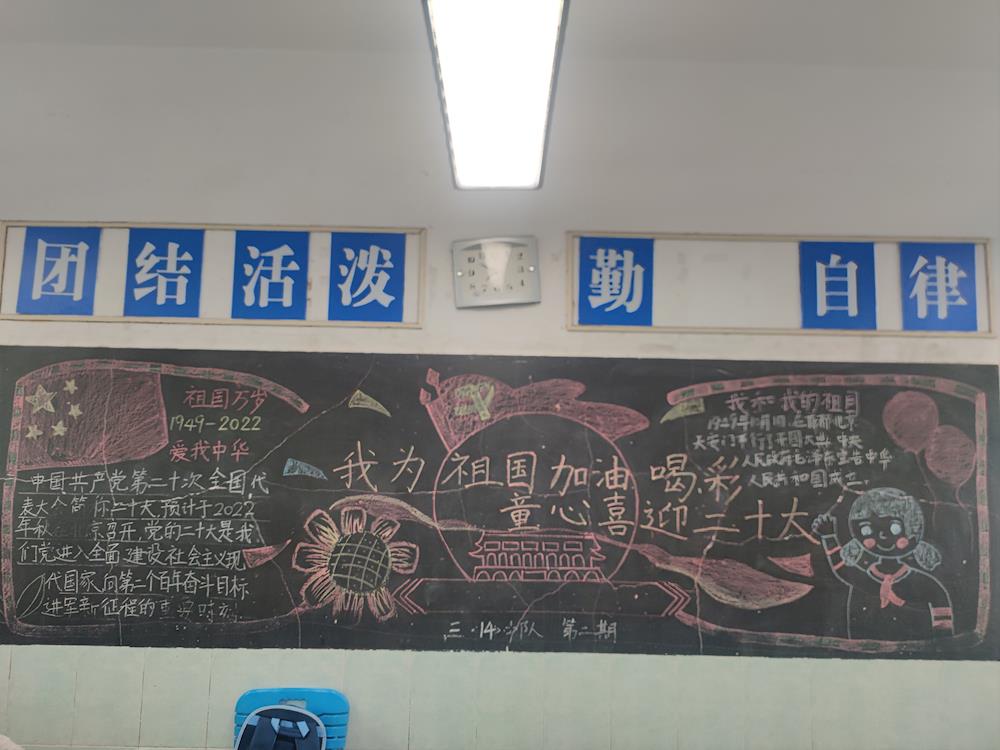 团结活泼
勤 自律
祖国万岁
1949-2022
爱我中华
中国共产党第二十次全国代
表大会简称二十大预计于2022
年秋在北京召开,党的二十大是我
们党进入全面建设社会主义现
代国家,向第一个百年奋斗目标
进军新征程的重要时刻
我为祖国加油喝彩
童心喜迎二十大
三·14·少队 第二期
我和我的祖国
天安门举行开国大典
人民政府 毛泽东宣告中华
人民共和国成立